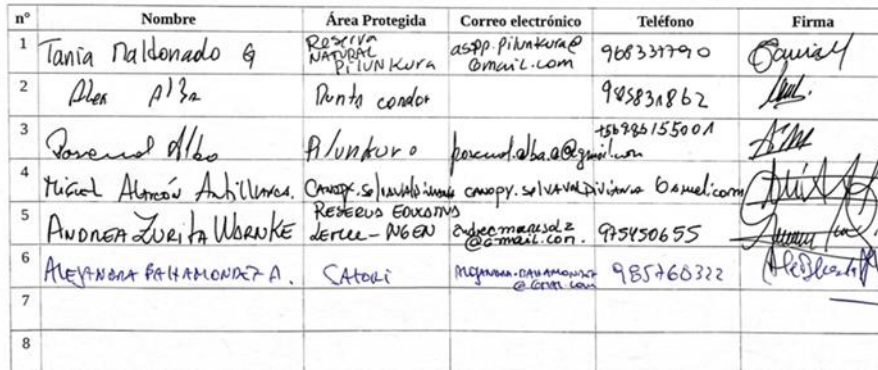 n° Nombre Área Protegida Correo electrónico Teléfono Firma
1 Tania Maldonado G Reserva NATURAL PiLUNKura aspp.pilunkura@gmail.com 968331790
2 Alex Alba Punto condor 985831862
3 Pascual Alba Pilunkura pascual.alba.a@gmail.com +56986155001
4 Miguel Alarcón Antillanca. Canopy.Selvavaldiviana canopy.selvavaldiviana Gmail.com
5 ANDREA ZURITA WARNKE RESERVA EDUCATIVA @gmail.com. 975450655
6 ALEJANDRA BAHAMONDEZ A. SATORI ALEJANDRA.BAHAMONDEZ @GMAIL.com 985760322
7
8